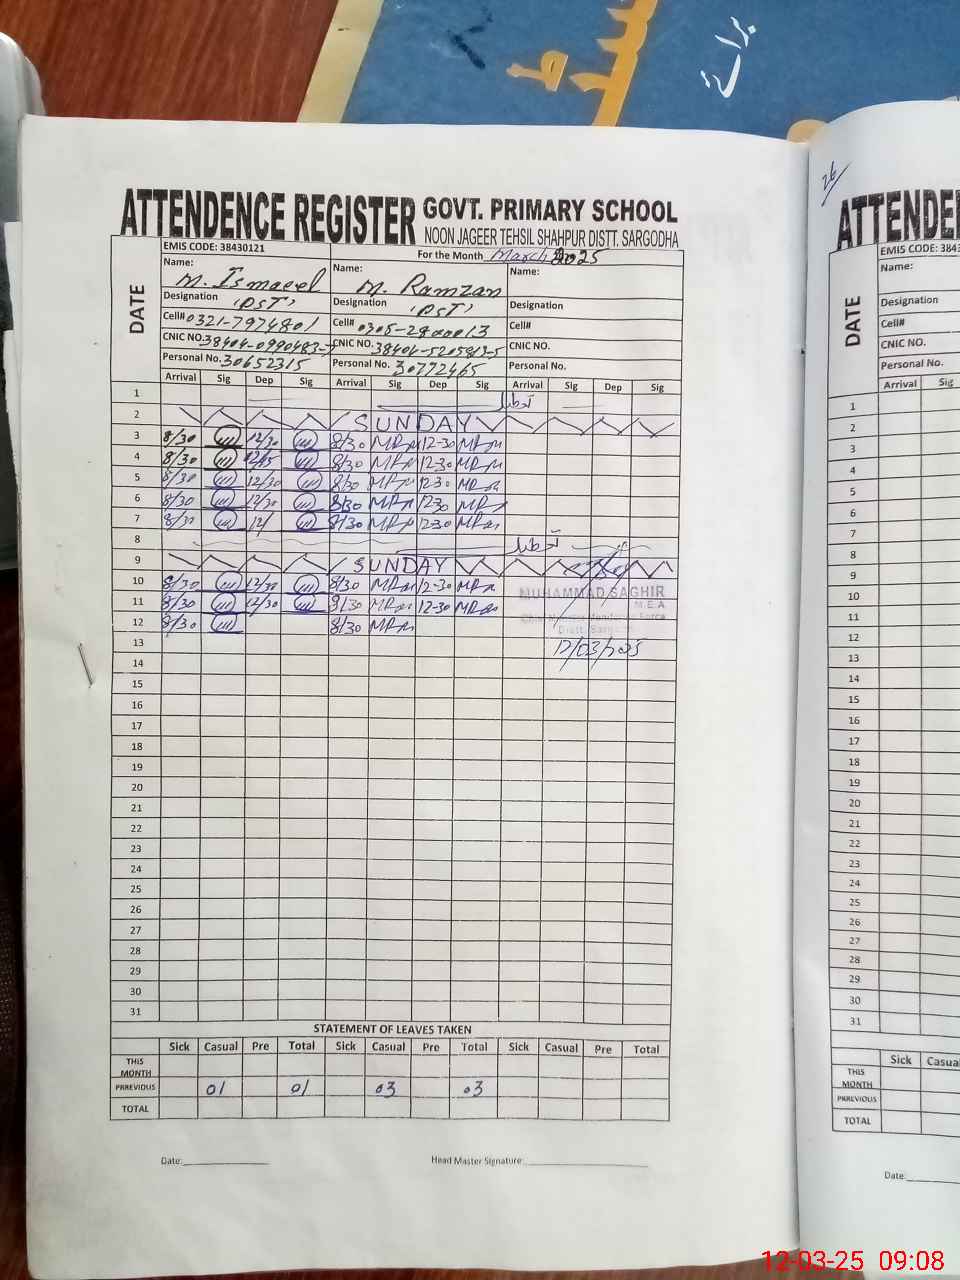 ATTENDENCE REGISTER GOVT. PRIMARY SCHOOL
NOON JAGEER TEHSIL SHAHPUR DISTT. SARGODHA
EMIS CODE: 38430121 For the Month March 2025
DATE
Name: M. Ismaeel Name: M. Ramzan Name:
Designation (PST) Designation (PST) Designation
Cell# 0321-7974801 Cell# Cell#
CNIC NO. CNIC NO. CNIC NO.
Personal No. 30652315 Personal No. 30772465 Personal No.
Arrival Sig Dep Sig Arrival Sig Dep Sig Arrival Sig Dep Sig
1 تعطیل
2 SUNDAY
3 8/30 12/30 8/30 12-30
4 8/30 12/15 8/30 12-30
5 8/30 12/30 8/30 12-30
6 8/30 12/30 8/30 12-30
7 8/30 12/ 8/30 12-30
8 تعطیل
9 SUNDAY
10 8/30 12/30 8/30 12-30
MUHAMMAD SAGHIR
11 8/30 12/30 8/30 12-30
M.E.A
12 8/30 8/30
Distt. Sargodha
13 12/03/2025
14
15
16
17
18
19
20
21
22
23
24
25
26
27
28
29
30
31
STATEMENT OF LEAVES TAKEN
Sick Casual Pre Total Sick Casual Pre Total Sick Casual Pre Total
THIS MONTH
PRREVIOUS 01 01 03 03
TOTAL
Date: Head Master Signature:
26
ATTENDE
EMIS CODE: 3843
DATE
Name:
Designation
Cell#
CNIC NO.
Personal No.
Arrival Sig
1
2
3
4
5
6
7
8
9
10
11
12
13
14
15
16
17
18
19
20
21
22
23
24
25
26
27
28
29
30
31
Sick Casua
THIS MONTH
PRREVIOUS
TOTAL
Date:
12-03-25 09:08